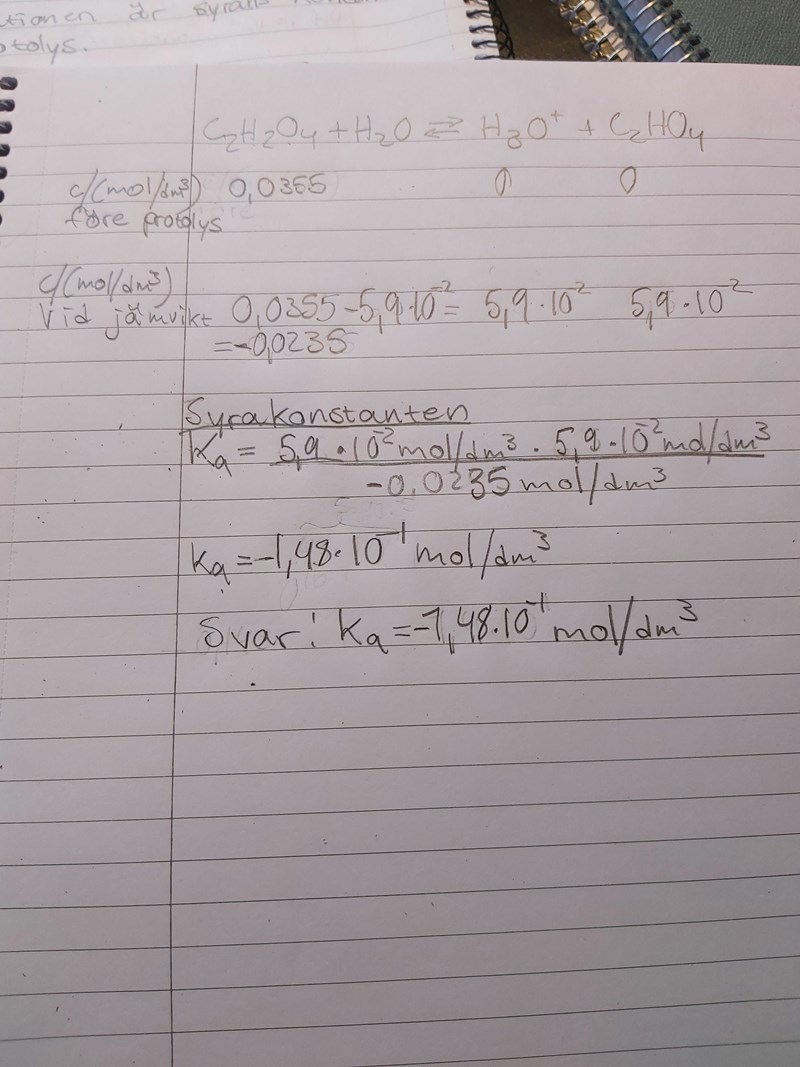 tionen är syrans
otolys.
C₂H₂O₄ + H₂O ⇄ H₃O⁺ + C₂HO₄
c/(mol/dm³) 0,0355 0 0
före protolys
c/(mol/dm³)
Vid jämvikt 0,0355-5,9·10⁻²= 5,9·10⁻² 5,9·10⁻²
=-0,0235
Syrakonstanten
Ka = 5,9·10⁻² mol/dm³ · 5,9·10⁻² mol/dm³
-0,0235 mol/dm³
Ka =-1,48·10⁻¹ mol/dm³
Svar: Ka =-1,48·10⁻¹ mol/dm³